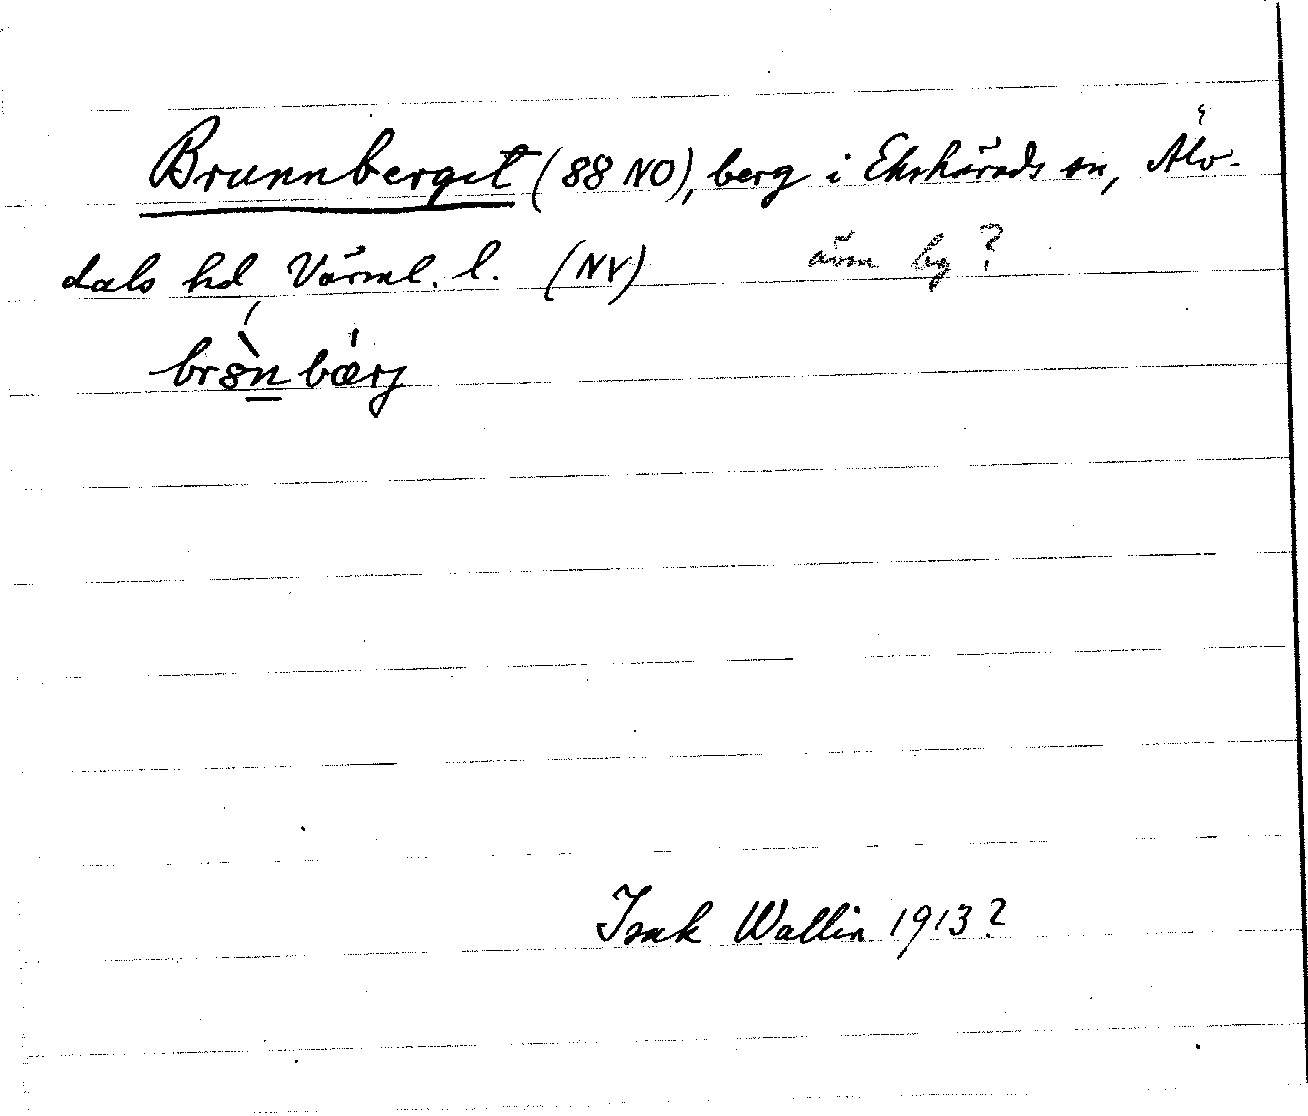 Brunnberget (88 NO), berg i Ekshärads sn, Älv-
dals hd Värml. l. (NV) även by ?
br8̀n bærj
Isak Wallin 1913?